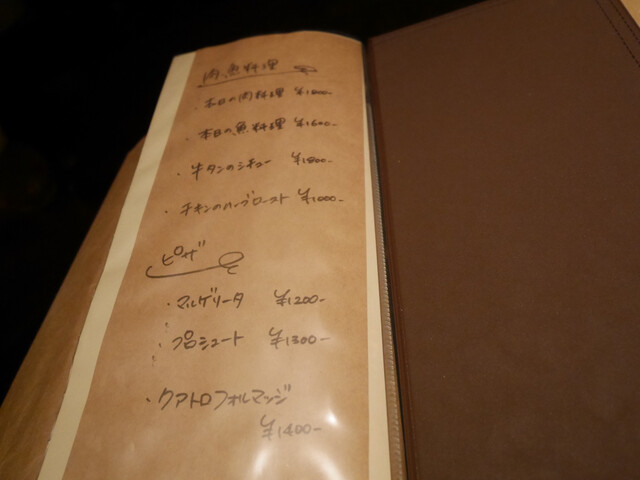 肉魚料理
・本日の肉料理 ¥1800-
・本日の魚料理 ¥1600-
・牛タンのシチュー ¥1800-
・チキンのハーブロースト ¥1000-
ピザ
・マルゲリータ ¥1200-
・プロシュート ¥1300-
・クアトロフォルマッジ
¥1400-